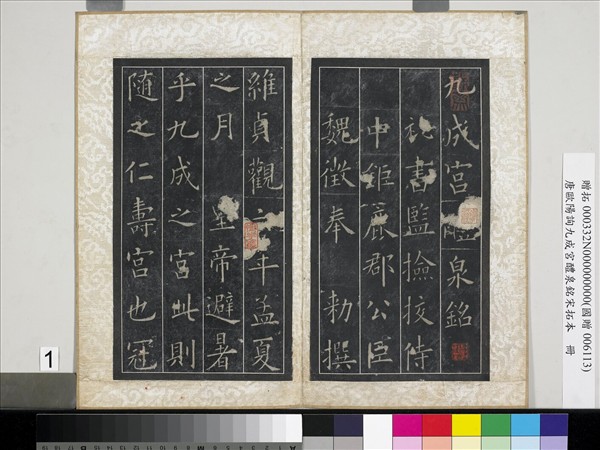 九成宮醴泉銘
祕書監撿挍侍
中鉅鹿郡公臣
魏徵奉 勅撰
維貞觀六年孟夏
之月 皇帝避暑
乎九成之宮此則
隨之仁壽宮也冠
贈拓 000332N000000000(國贈 006113)
唐歐陽詢九成宮醴泉銘宋拓本 冊
1